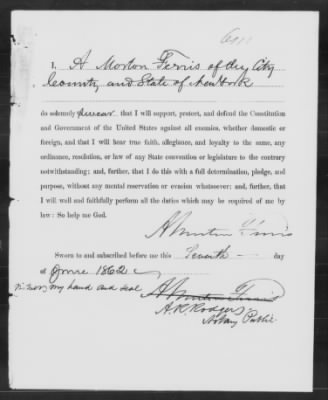 I, A Morton Ferris of the City
County and State of New York
do solemnly swear that I will support, protect, and defend the Constitution
and Government of the United States against all enemies, whether domestic
or foreign, and that I will bear true faith, allegiance, and loyalty to the same, any
ordinance, resolution, or law of any State convention or legislature to the contrary
notwithstanding; and, further, that I do this with a full determination, pledge, and
purpose, without any mental reservation or evasion whatsoever: and, further, that
I will well and faithfully perform all the duties which may be required of me by
law: So help me God.
A Morton Ferris
Sworn to and subscribed before me this Seventh day
of June 1862
my hand and seal
A Morton Ferris
A. R. Rodgers
Notary Public